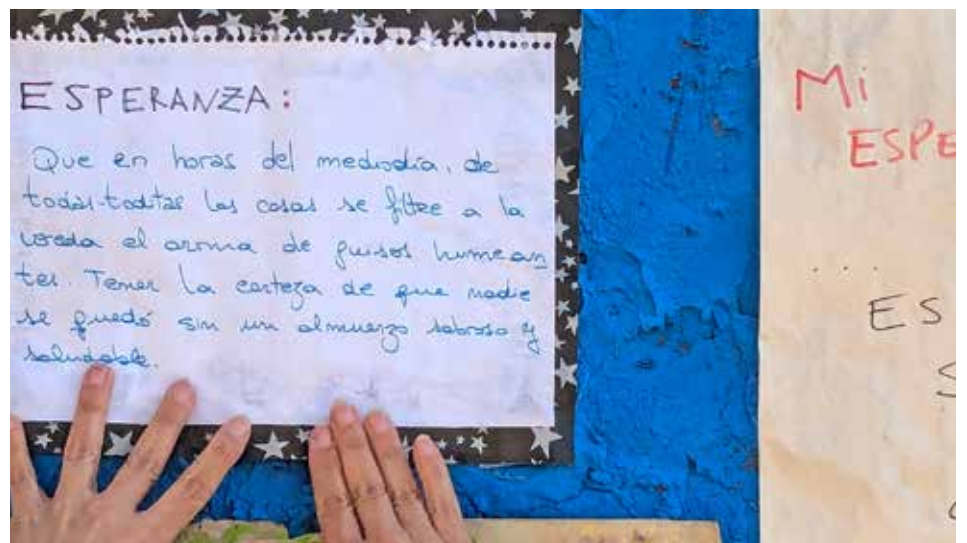 ESPERANZA:
Que en horas del mediodía, de
todas-toditas las casas se filtre a la
vereda el aroma de guisos humean
tes. Tener la certeza de que nadie
se quedó sin un almuerzo sabroso y
saludable.
Mi
ESPE
...
ES
S